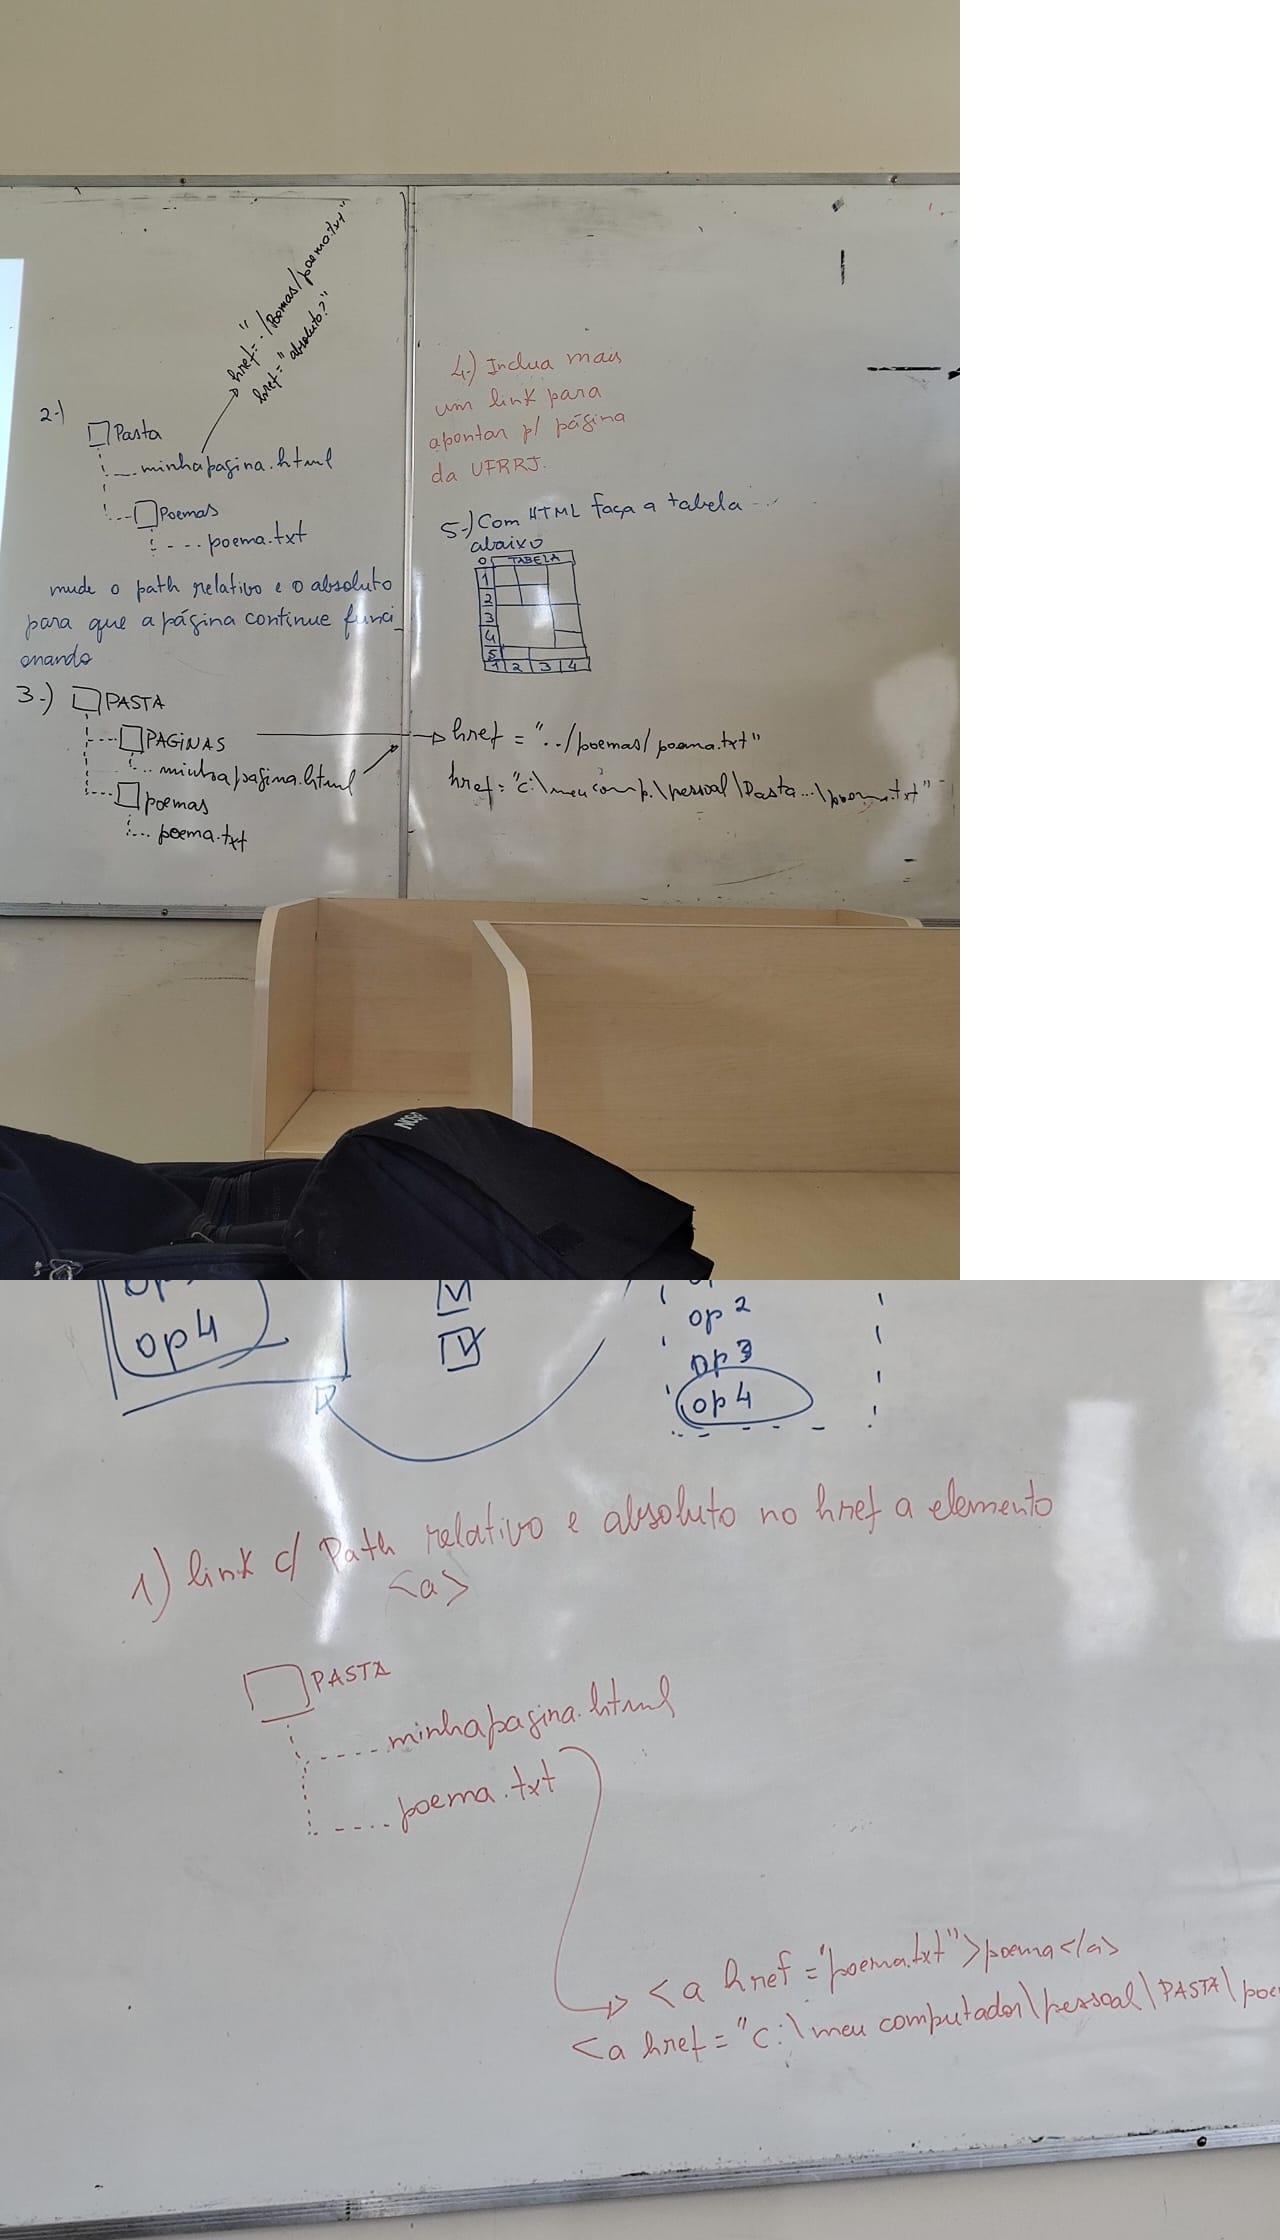 href="./Poemas/poema.txt"
href="absoluto?"
2-)
Pasta
minhapagina.html
Poemas
poema.txt
mude o path relativo e o absoluto
para que a página continue funci
onando
3-)
PASTA
PAGINAS
minhapagina.html
poemas
poema.txt
4-) Inclua mais
um link para
apontar p/ página
da UFRRJ.
5-) Com HTML faça a tabela
abaixo
0 TABELA
1
2
3
4
5
1 2 3 4
href = "../poemas/poema.txt"
href="c:\meu comp.\pessoal\Pasta...\poema.txt"
op4
op 2
op 3
op 4
1) link c/ Path relativo e absoluto no href a elemento
<a>
PASTA
minhapagina.html
poema.txt
<a href="poema.txt">poema</a>
<a href="c:\meu computador\pessoal\PASTA\poe